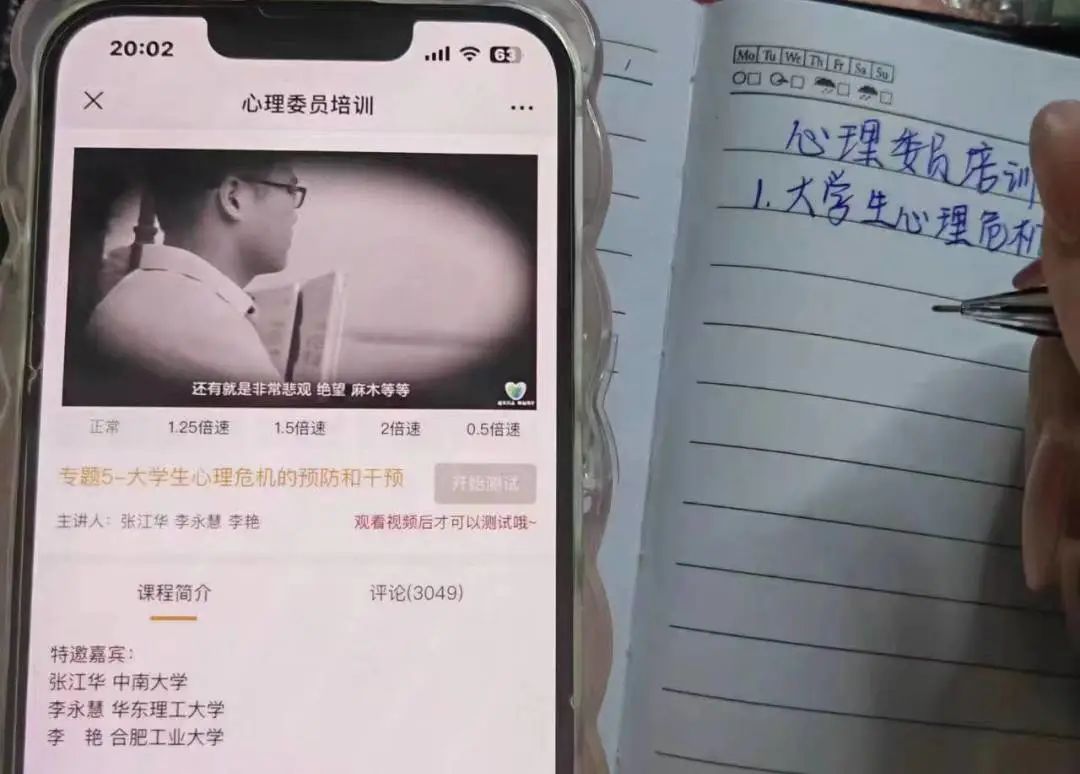 20:02
63
心理委员培训
还有就是非常悲观 绝望 麻木等等
正常 1.25倍速 1.5倍速 2倍速 0.5倍速
专题5-大学生心理危机的预防和干预
开始测试
主讲人: 张江华 李永慧 李艳
观看视频后才可以测试哦~
课程简介
评论(3049)
特邀嘉宾:
张江华 中南大学
李永慧 华东理工大学
李 艳 合肥工业大学
Mo Tu We Th Fr Sa Su
心理委员培训
1. 大学生心理危机